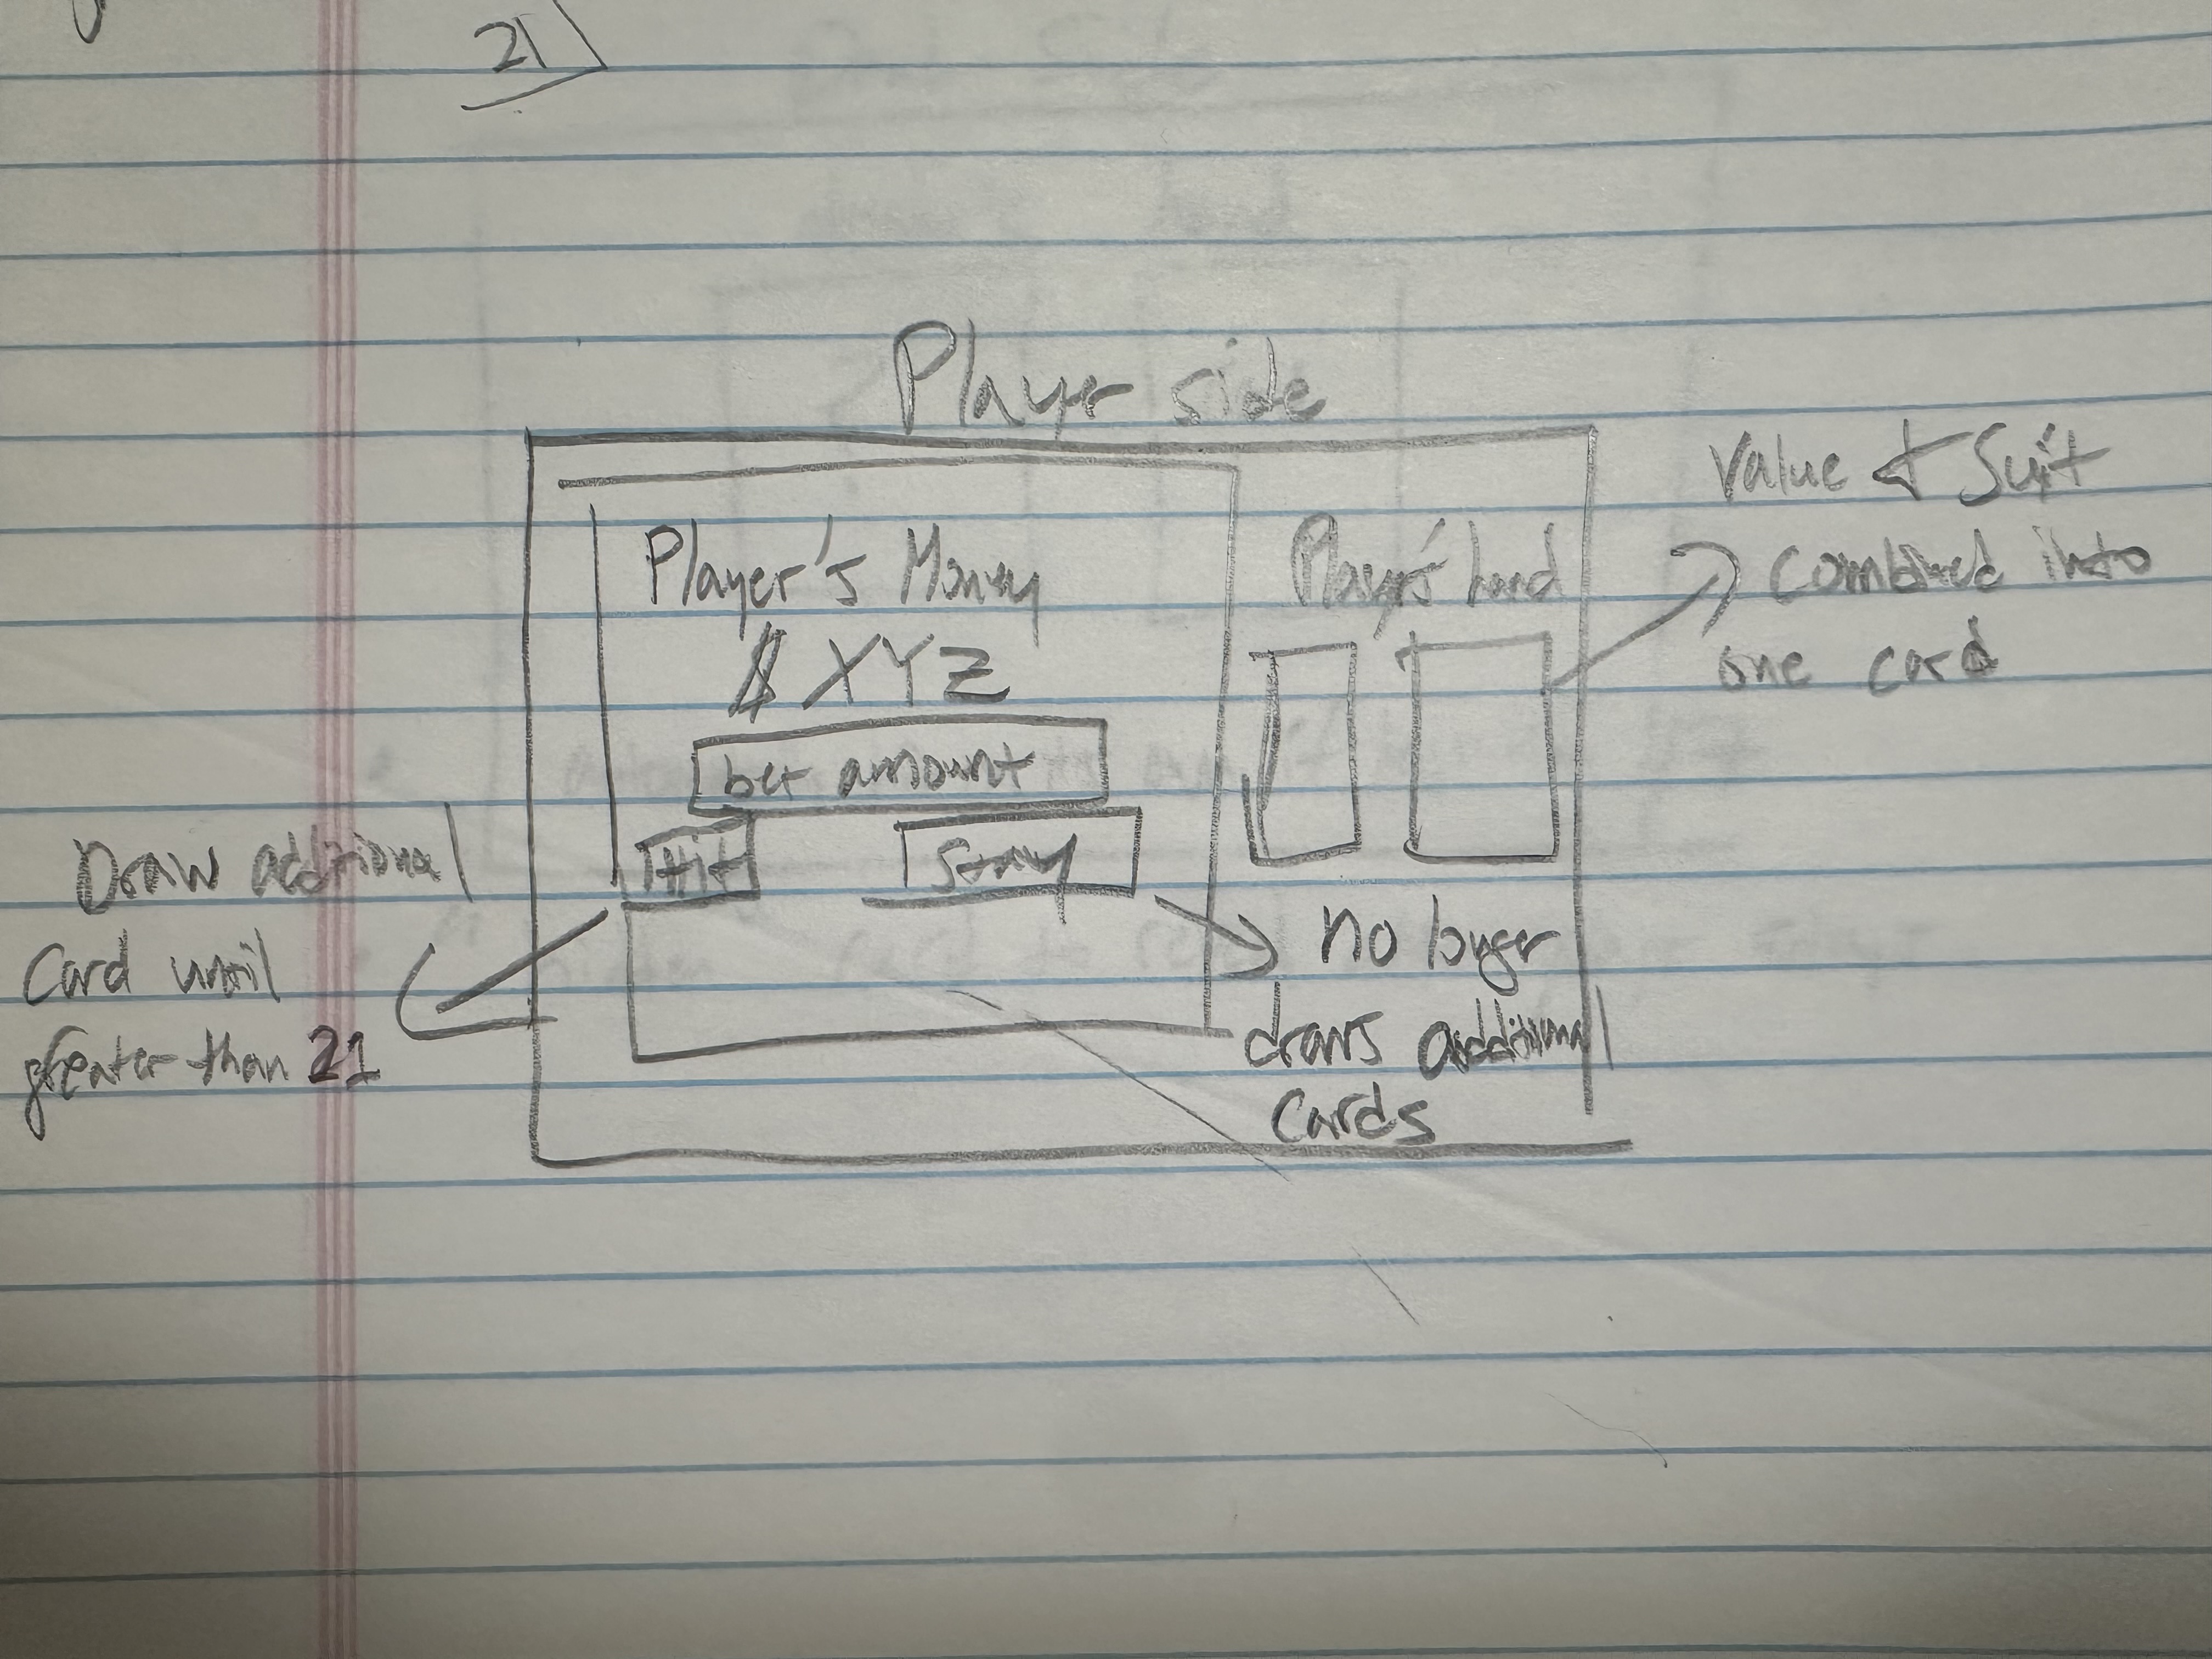 21
Player side
Player's Money
$ XYZ
bet amount
Hit
Stay
Player's hand
Value & Suit
Combined into
one card
Draw additional
Card until
greater than 21
no longer
draws additional
Cards